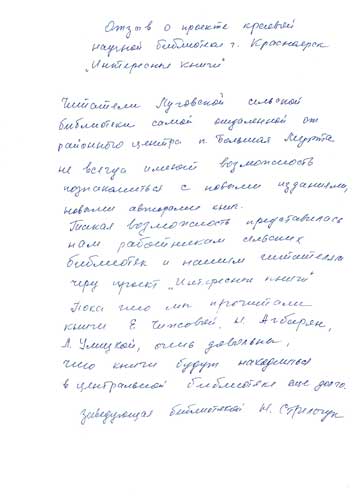 Отзыв о проекте краевой
научной библиотеки г. Красноярск
„Интересные книги"
Читатели Луговской сельской
библиотеки самой отдаленной от
районного центра п. Большая Мурта
не всегда имеют возможность
познакомиться с новыми изданиями,
новыми авторами книг.
Такая возможность представилась
нам работникам сельских
библиотек и нашим читателям
через проект „Интересные книги"
Пока что мы прочитали
книги Е. Чижовой, Н. Абгарян,
Л. Улицкой, очень довольны,
что книги будут находиться
в центральной библиотеке еще долго.
заведующая библиотекой Н.